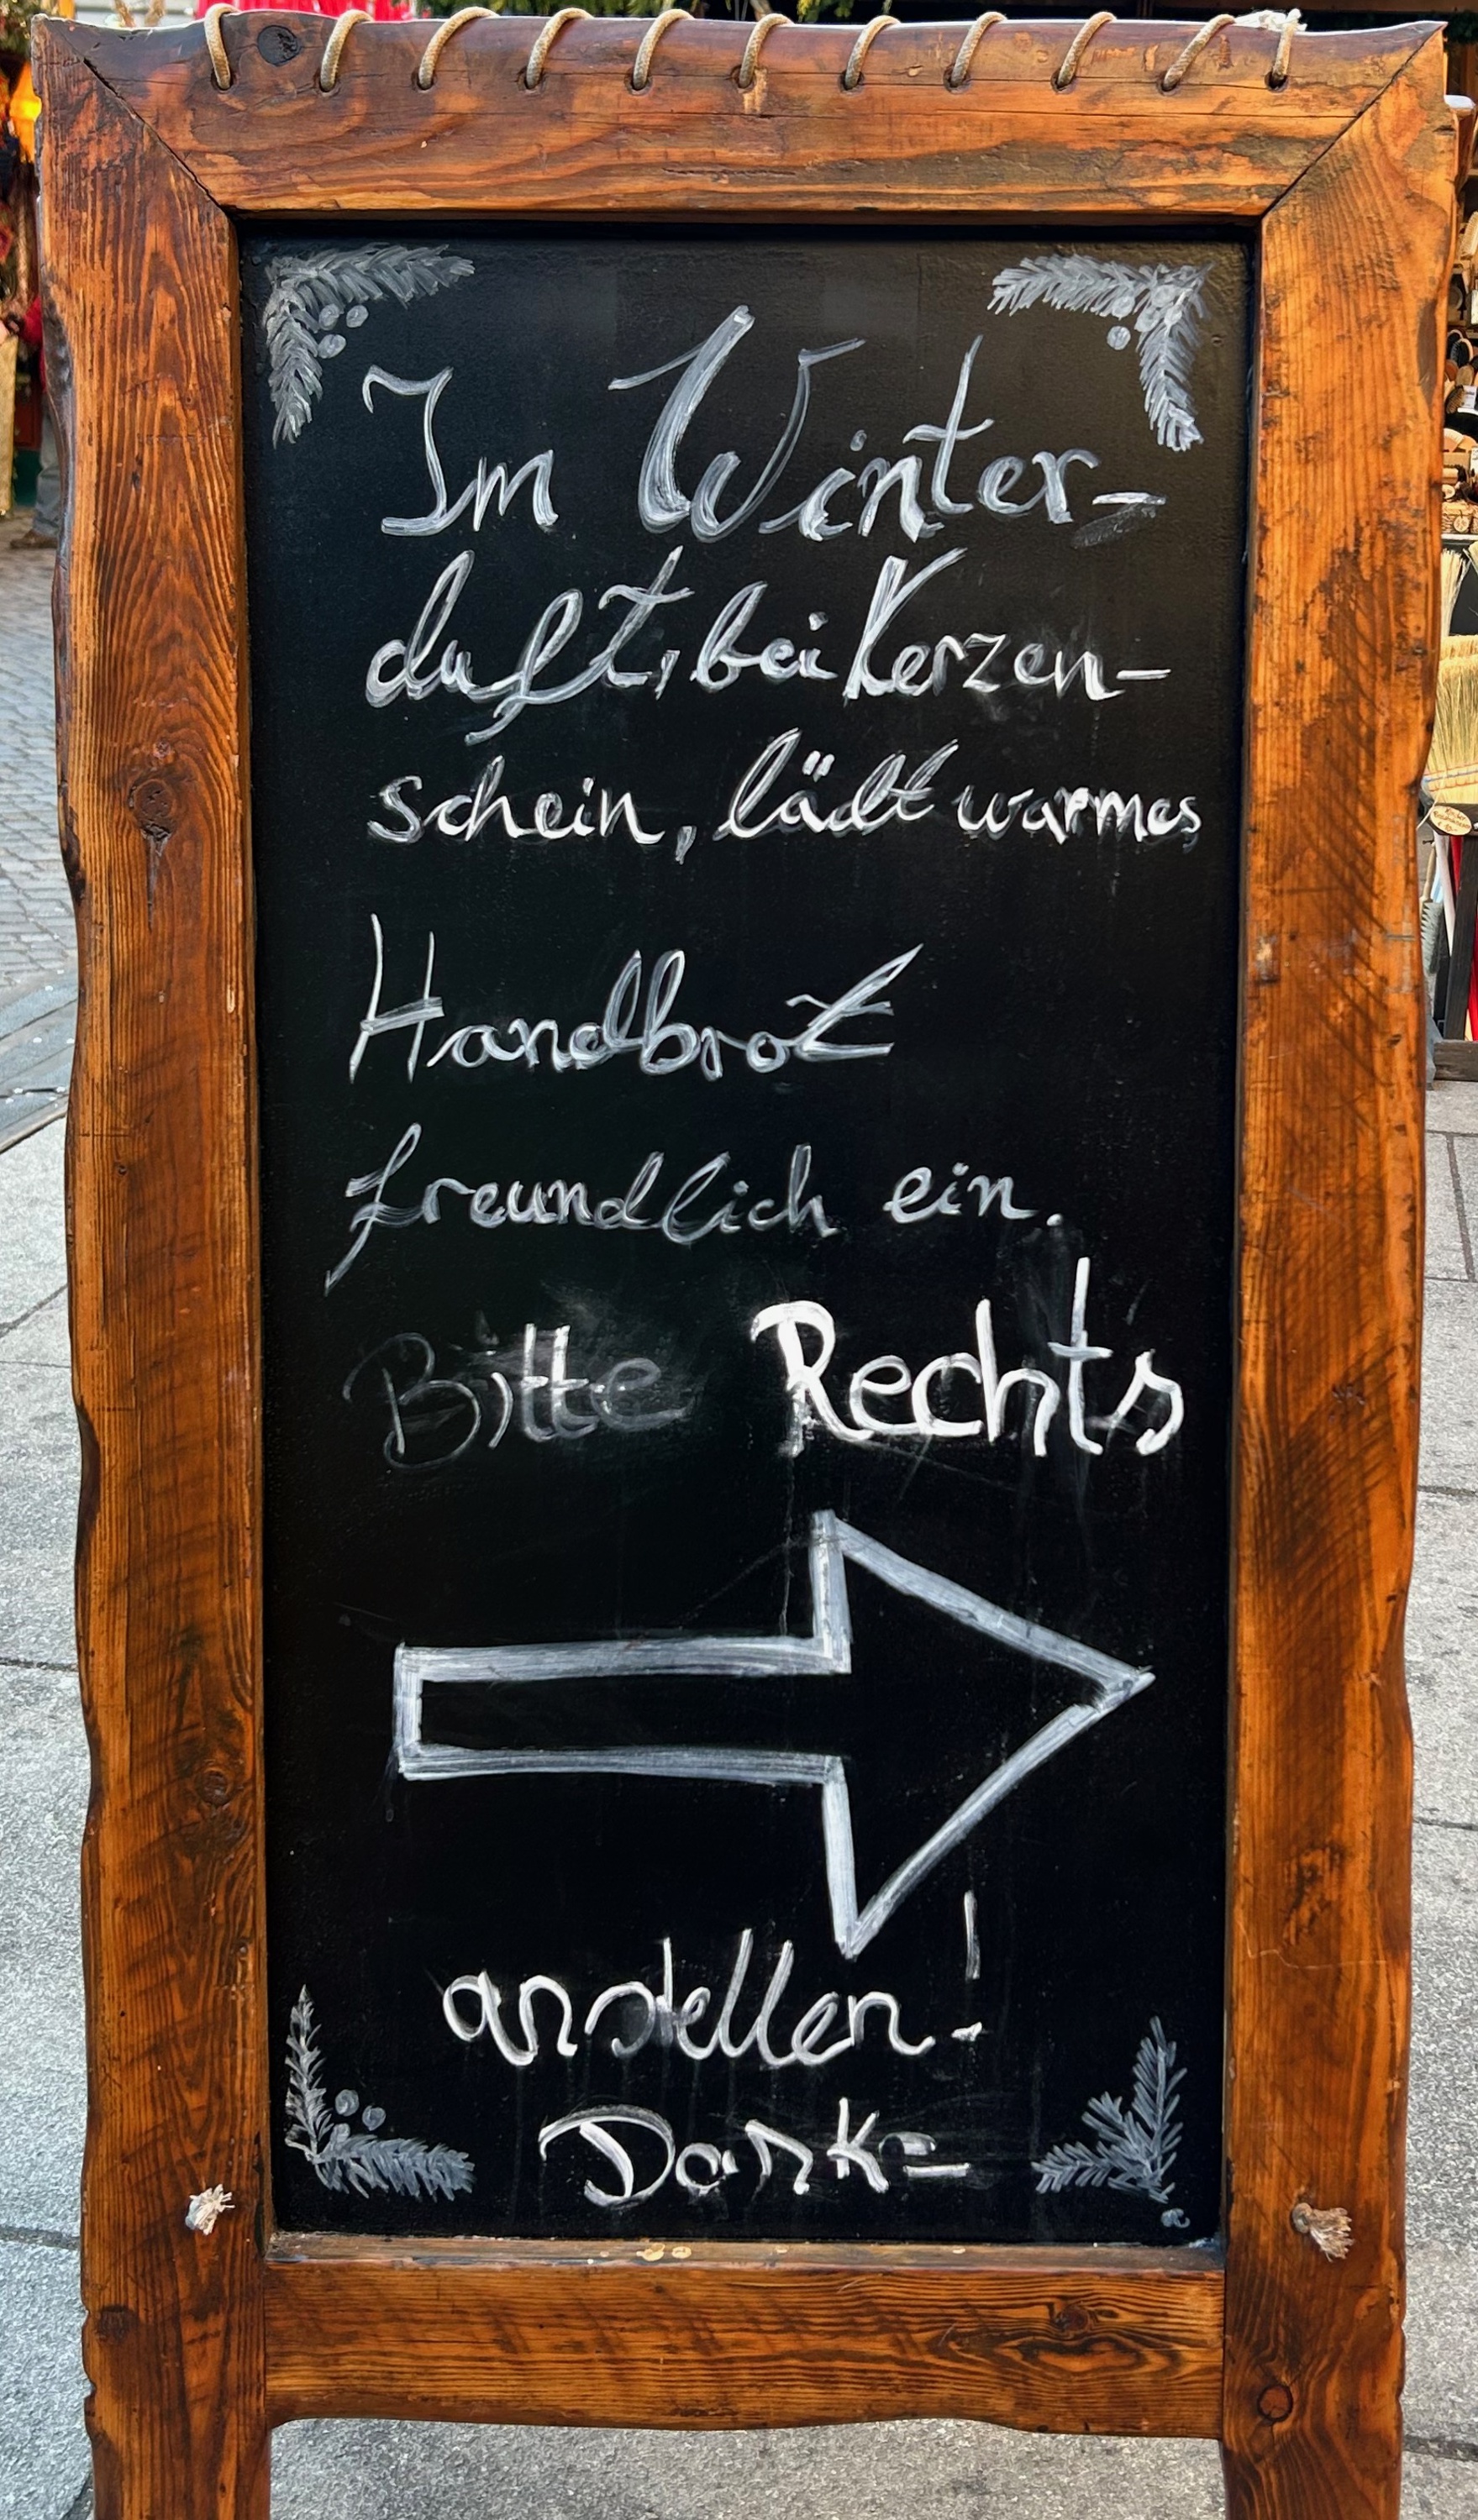 Im Winter-
duft, bei Kerzen-
schein, lädt warmes
Handbrot
freundlich ein.
Bitte Rechts
anstellen!
Dank=